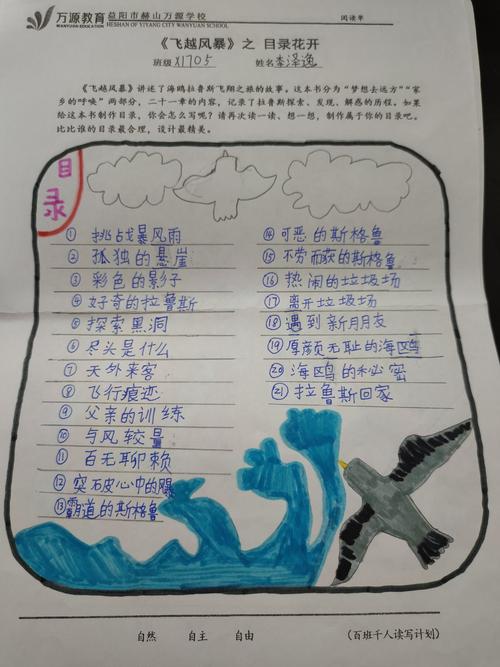 万源教育 益阳市赫山万源学校
WANYUAN EDUCATION HESHAN OF YIYANG CITY WANYUAN SCHOOL
阅读单
《飞越风暴》之 目录花开
班级 X1705 姓名 李泽逸
《飞越风暴》讲述了海鸥拉鲁斯飞翔之旅的故事。这本书分为“梦想去远方”“家
乡的呼唤”两部分，二十一章的内容，记录了拉鲁斯探索、发现、解惑的历程。如果
给这本书制作目录，你会怎么写呢？请再次读一读、想一想，制作属于你的目录吧。
比比谁的目录最合理，设计最精美。
目录
① 挑战暴风雨
② 孤独的悬崖
③ 彩色的影子
④ 好奇的拉鲁斯
⑤ 探索黑洞
⑥ 尽头是什么
⑦ 天外来客
⑧ 飞行痕迹
⑨ 父亲的训练
⑩ 与风较量
⑪ 百无聊赖
⑫ 突石皮心中的
⑬ 霸道的斯格鲁
⑭ 可恶的斯格鲁
⑮ 不劳而获的斯格鲁
⑯ 热闹的垃圾场
⑰ 离开垃圾场
⑱ 遇到新月朋友
⑲ 厚颜无耻的海鸥
⑳ 海鸥的秘密
㉑ 拉鲁斯回家
自然 自主 自由
(百班千人读写计划)